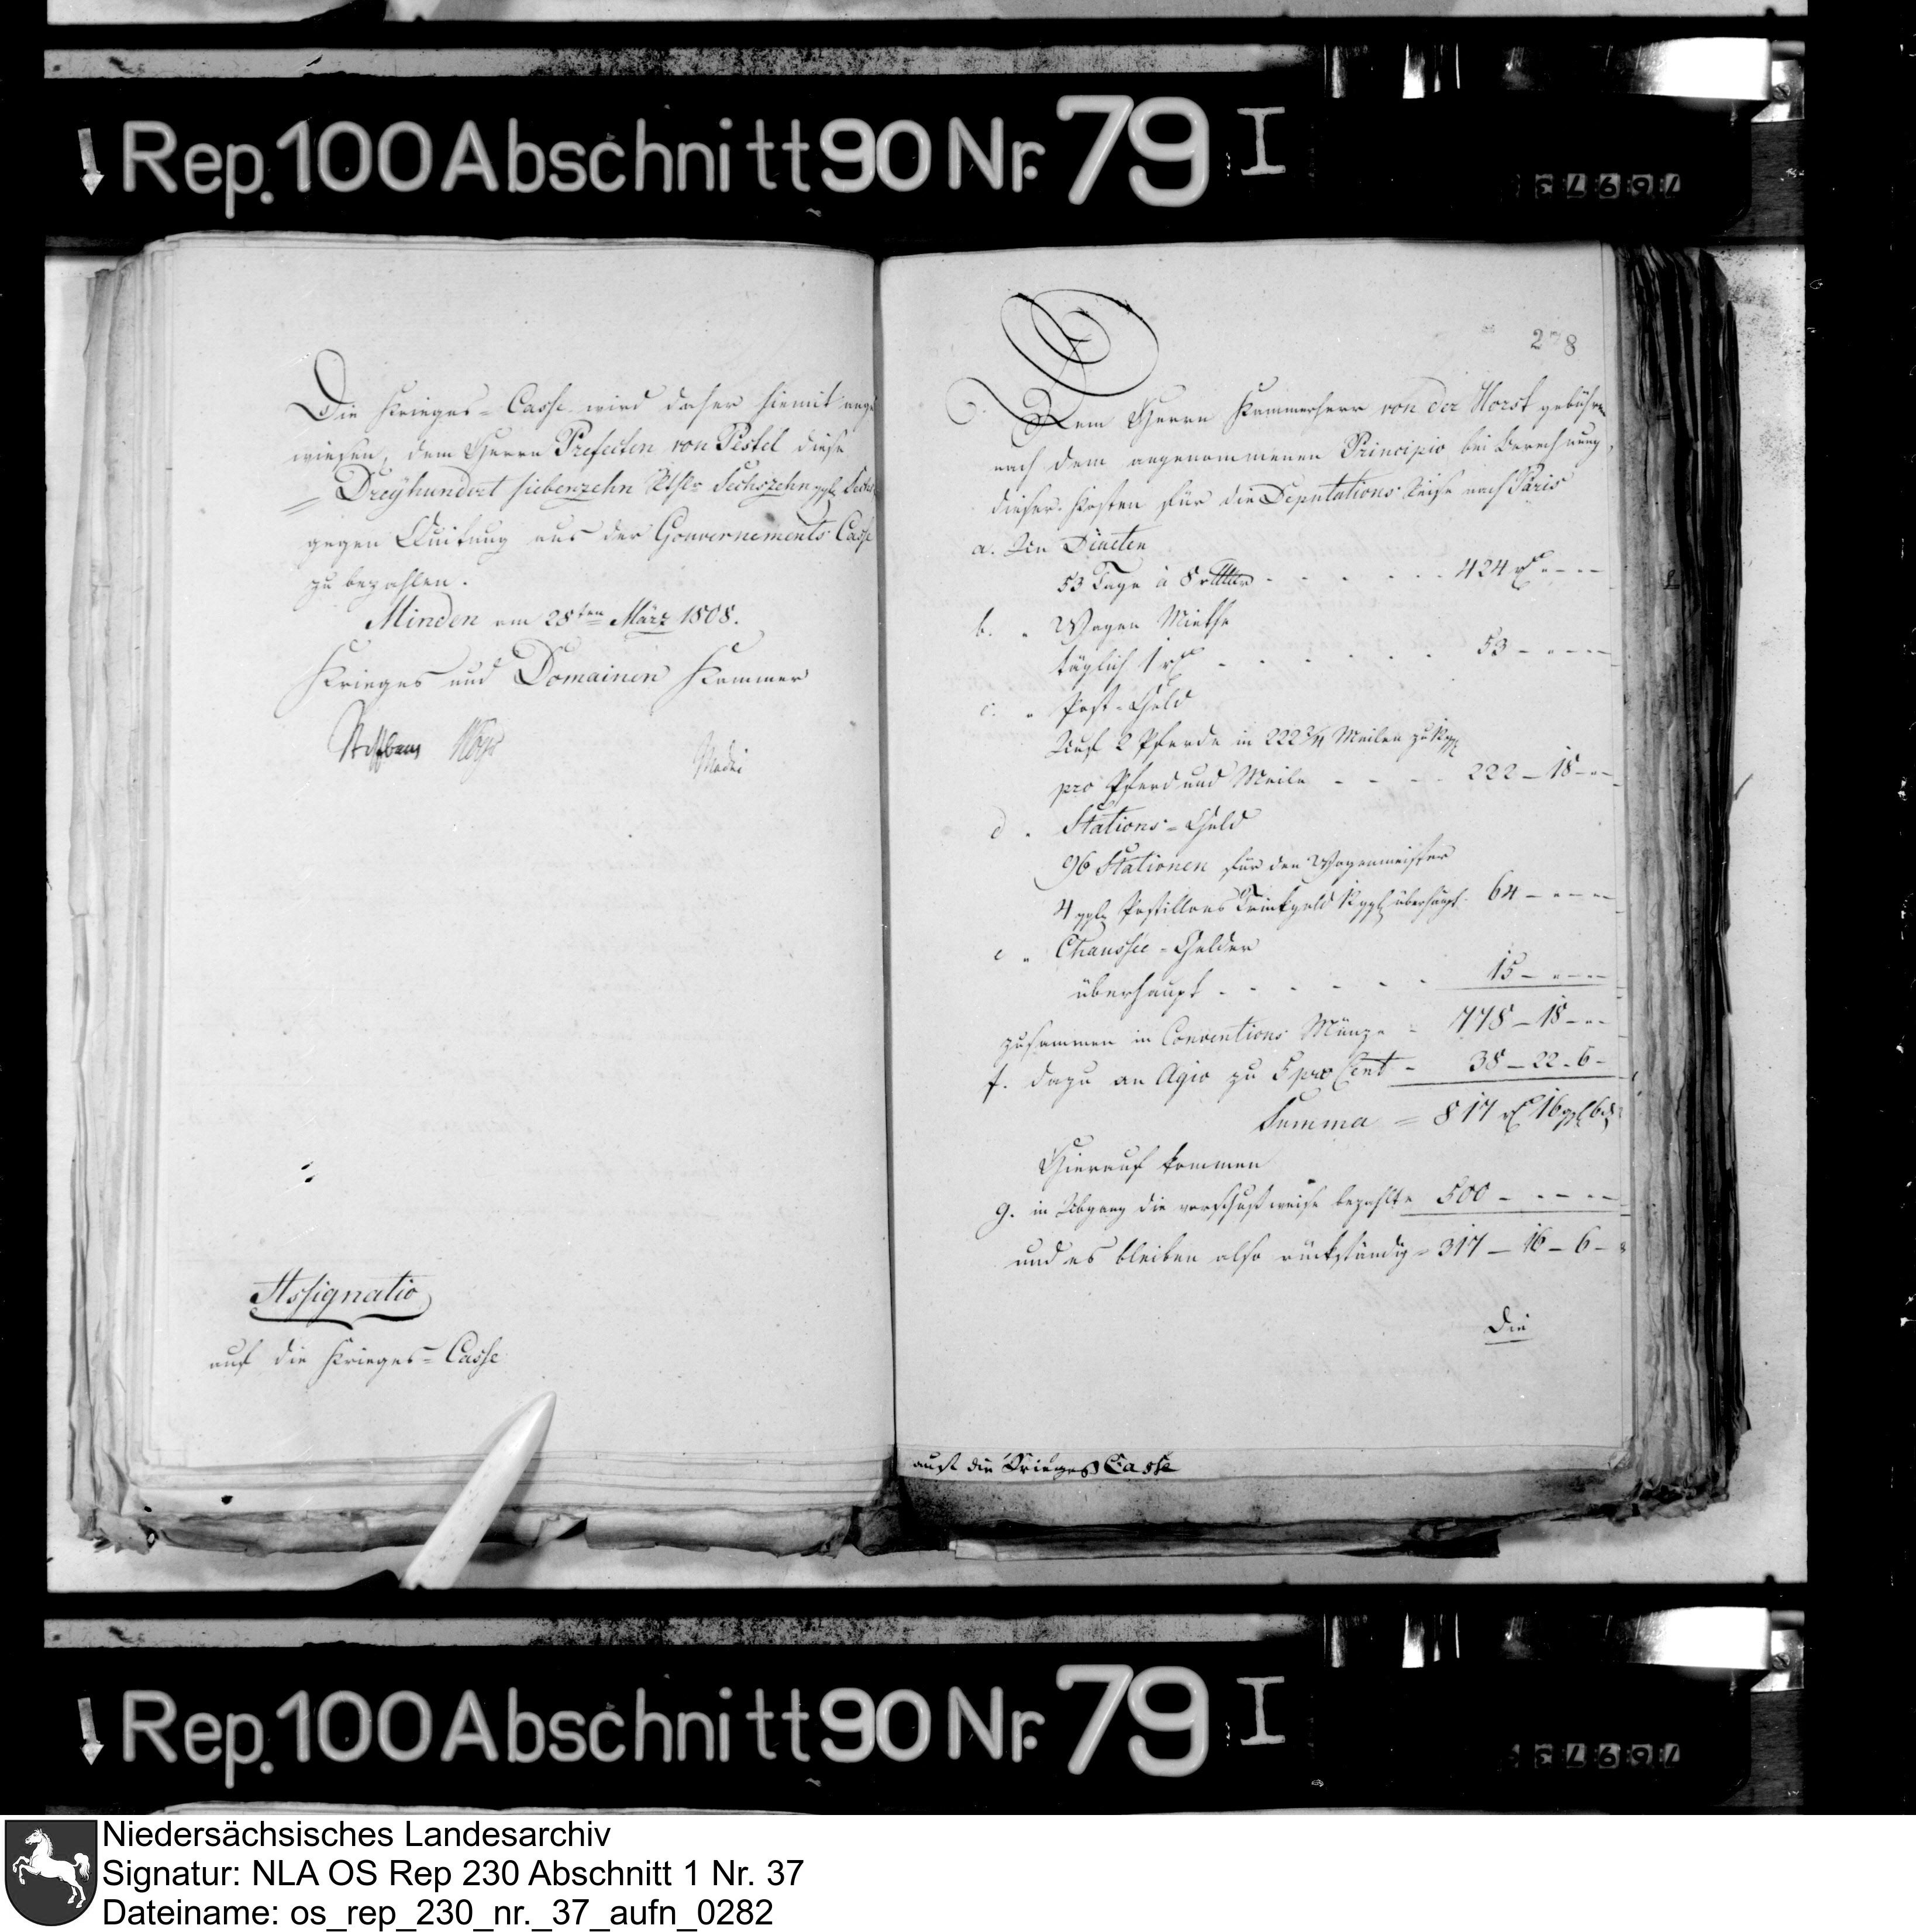 Rep. 100 Abschnitt 90 Nr. 79 I
76973
Die Krieges-Casse wird daher hiemit ange
wiesen, dem Herrn Prefecten von Pestel diese
Dreyhundert siebenzehn Rthlr Sechszehn ggl. Sechs
gegen Quitung aus der Gouvernements Casse
zu bezahlen.
Minden am 28ten März 1808.
Krieges und Domainen Kammer
Assignatio
auf die Krieges-Casse
278
Dem Herrn Kammerherr von der Horst gebühren
nach dem angenommenen Principio bei Berechnung
dieser Kosten für die Deputations Reise nach Paris
a. An Diaeten
53 Tage à 8 rthlr - - - - - 424 rt - - -
b. " Wagen Miethe
täglich 1 rt - - - - - - 53 - - - -
c. " Post-Geld
Auf 2 Pferde in 222 3/4 Meilen zu 12 ggl
pro Pferd und Meile - - - - 222 - 18 - -
d " Stations-Geld
96 Stationen für den Wagenmeister
4 ggl. Postillons Trinkgeld 12 ggl überhaupt 64 - - - -
e " Chaussée-Gelder
überhaupt - - - - - - 15 - - - -
zusammen in Conventions Münze - 778 - 18 - -
f. dazu an Agio zu 5 pro Cent - 38 - 22 - 6 -
Summa = 817 rt 16 ggl 6 d
Hierauf kommen
g. in Abgang die vorschußweise bezahlte 500 - - - -
und es bleiben also rückständig = 317 - 16 - 6 -
Die
auf die Krieges Casse
Rep. 100 Abschnitt 90 Nr. 79 I
76973
Niedersächsisches Landesarchiv
Signatur: NLA OS Rep 230 Abschnitt 1 Nr. 37
Dateiname: os_rep_230_nr._37_aufn_0282